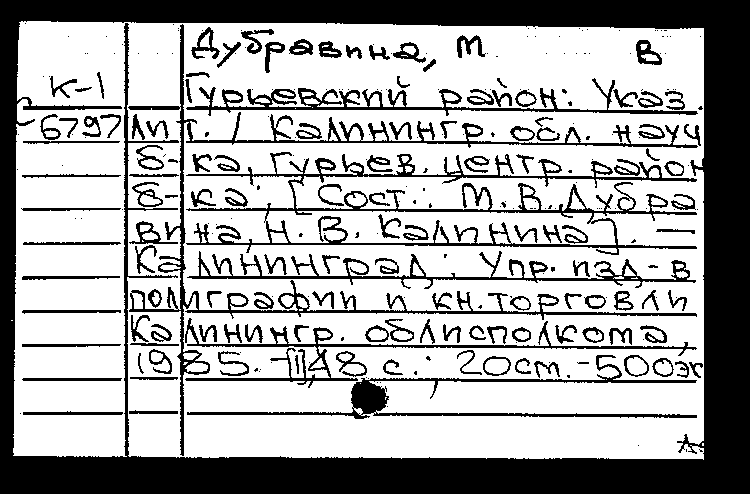 Дубравина, М В
К-1 Гурьевский район: Указ.
6797 лит. / Калинингр. обл. науч
б-ка, Гурьев. центр. район
б-ка; [Сост.: М. В. Дубра
вина, Н. В. Калинина]. —
Калининград: Упр. изд-в
полиграфии и кн. торговли
Калинингр. облисполкома,
1985. - [1], 48 с.; 20 ст. - 500 эк